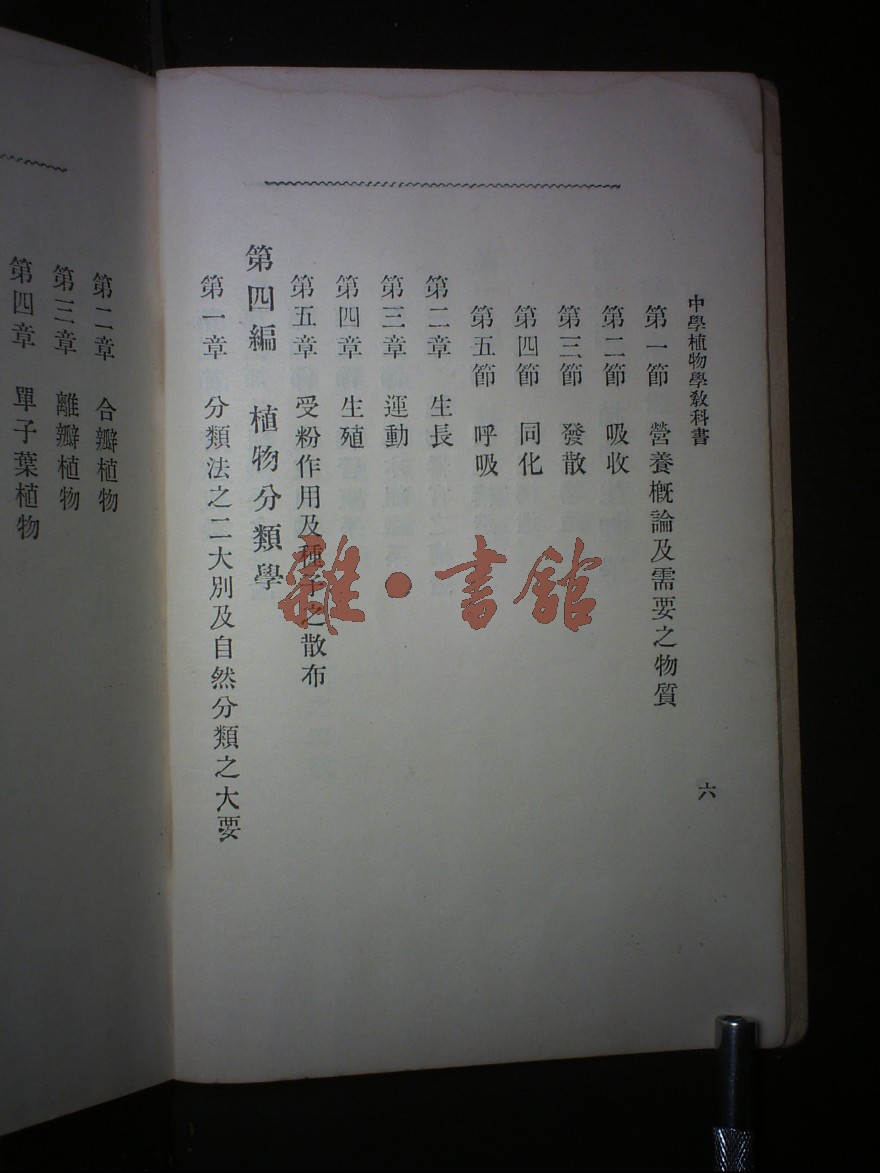 中學植物學敎科書
六
第一節 營養槪論及需要之物質
第二節 吸收
第三節 發散
第四節 同化
第五節 呼吸
第二章 生長
第三章 運動
第四章 生殖
第五章 受粉作用及種子之散布
第四編 植物分類學
第一章 分類法之二大別及自然分類之大要
第二章 合瓣植物
第三章 離瓣植物
第四章 單子葉植物
雜·書館